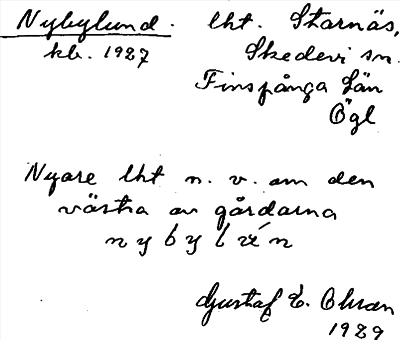 Nybylund. lht. Starnäs,
kb. 1927 Skedevi sn.
Finspånga län
Ögl
Nyare lht n. v. om den
västra av gårdarna
nybyl
Gustaf E.
1929